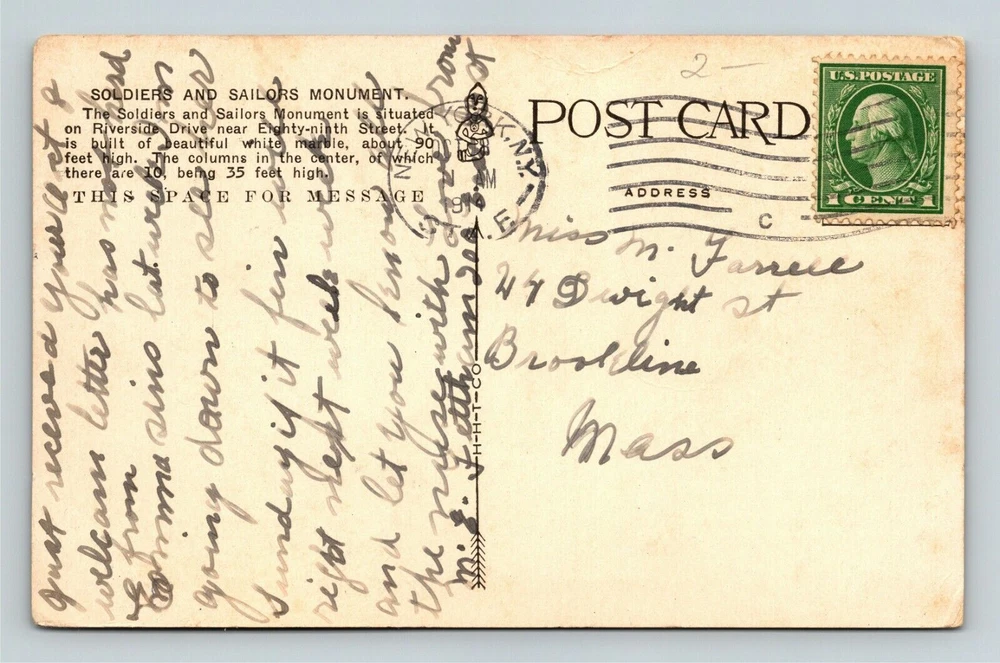 2—
SOLDIERS AND SAILORS MONUMENT.
The Soldiers and Sailors Monument is situated
on Riverside Drive near Eighty-ninth Street. It
is built of beautiful white marble, about 90
feet high. The columns in the center, of which
there are 10, being 35 feet high.
THIS SPACE FOR MESSAGE
POST CARD
ADDRESS
U.S. POSTAGE
1 CENT 1
NEW YORK, N.Y.
AM
191
C
H-H-T-CO
Miss M. Farrell
47 Dwight st
Brookline
Mass
just received your act &
welcam letter has not herd
from
Emma sins last week I am
going down to see her
Sunday if it fin all
right next week will
and let you know all
the nuse with love from
M. E.
st